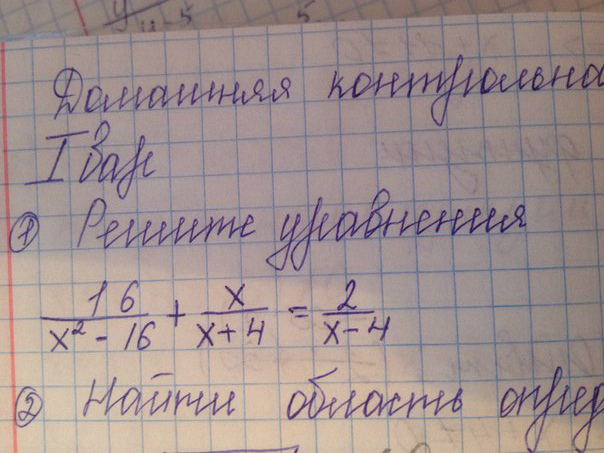 y/(y-5) 5
Домашняя контрольна
I вар
① Решите уравнения
16/(x² - 16) + x/(x+4) = 2/(x-4)
② Найти область опред